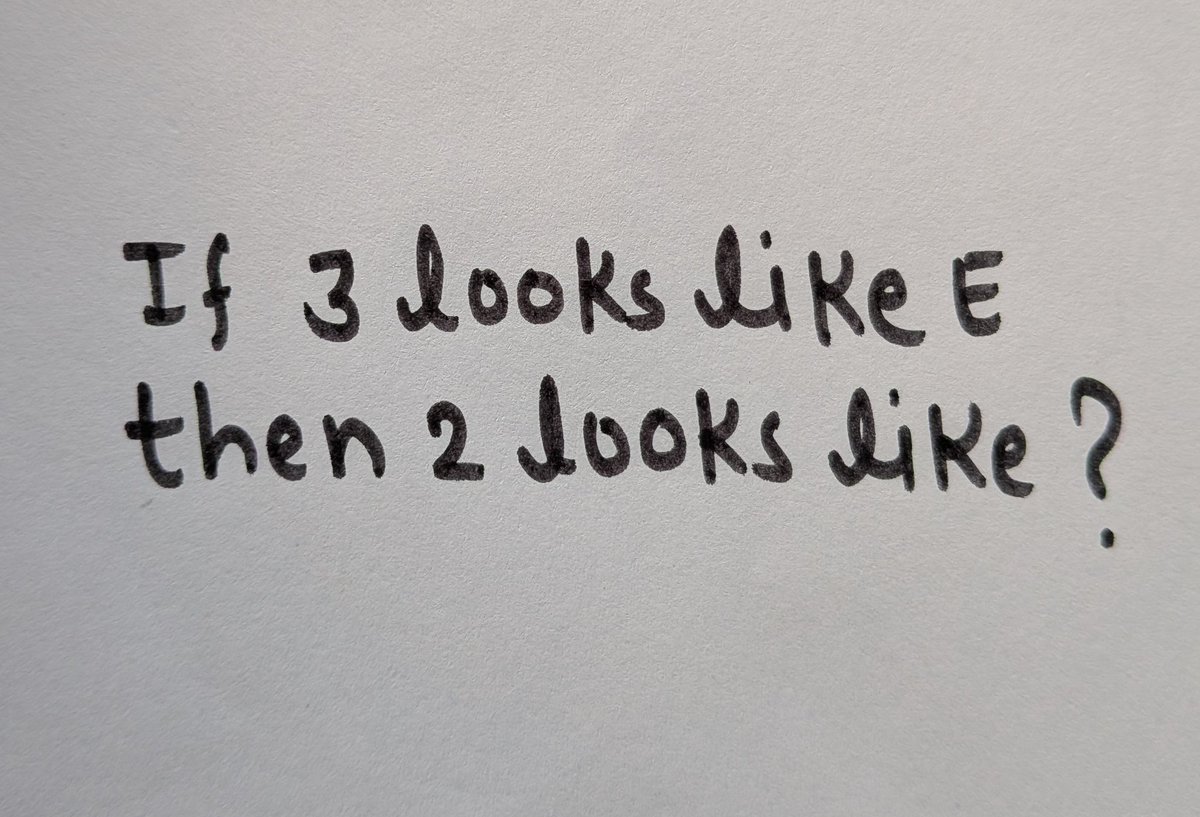 If 3 looks like E
then 2 looks like ?